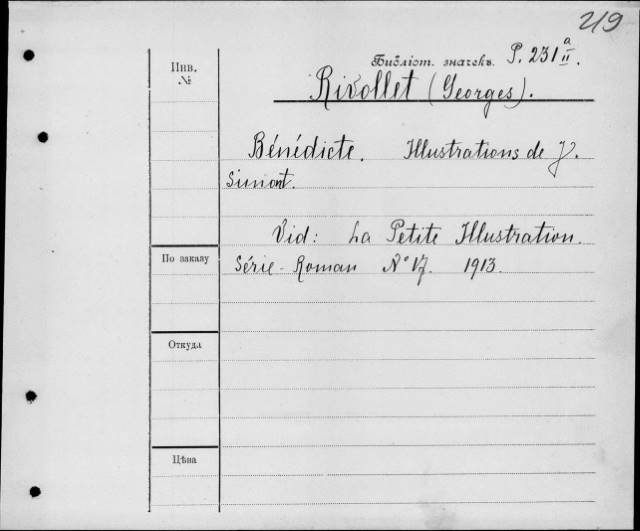 219
Библіот. значекъ P. 231ᵃ II.
Rivollet (Georges).
Инв.
№
Bénédicte. Illustrations de J.
Simont.
Vid: La Petite Illustration.
По заказу
Série-Roman N° 17. 1913.
Откуда
Цѣна